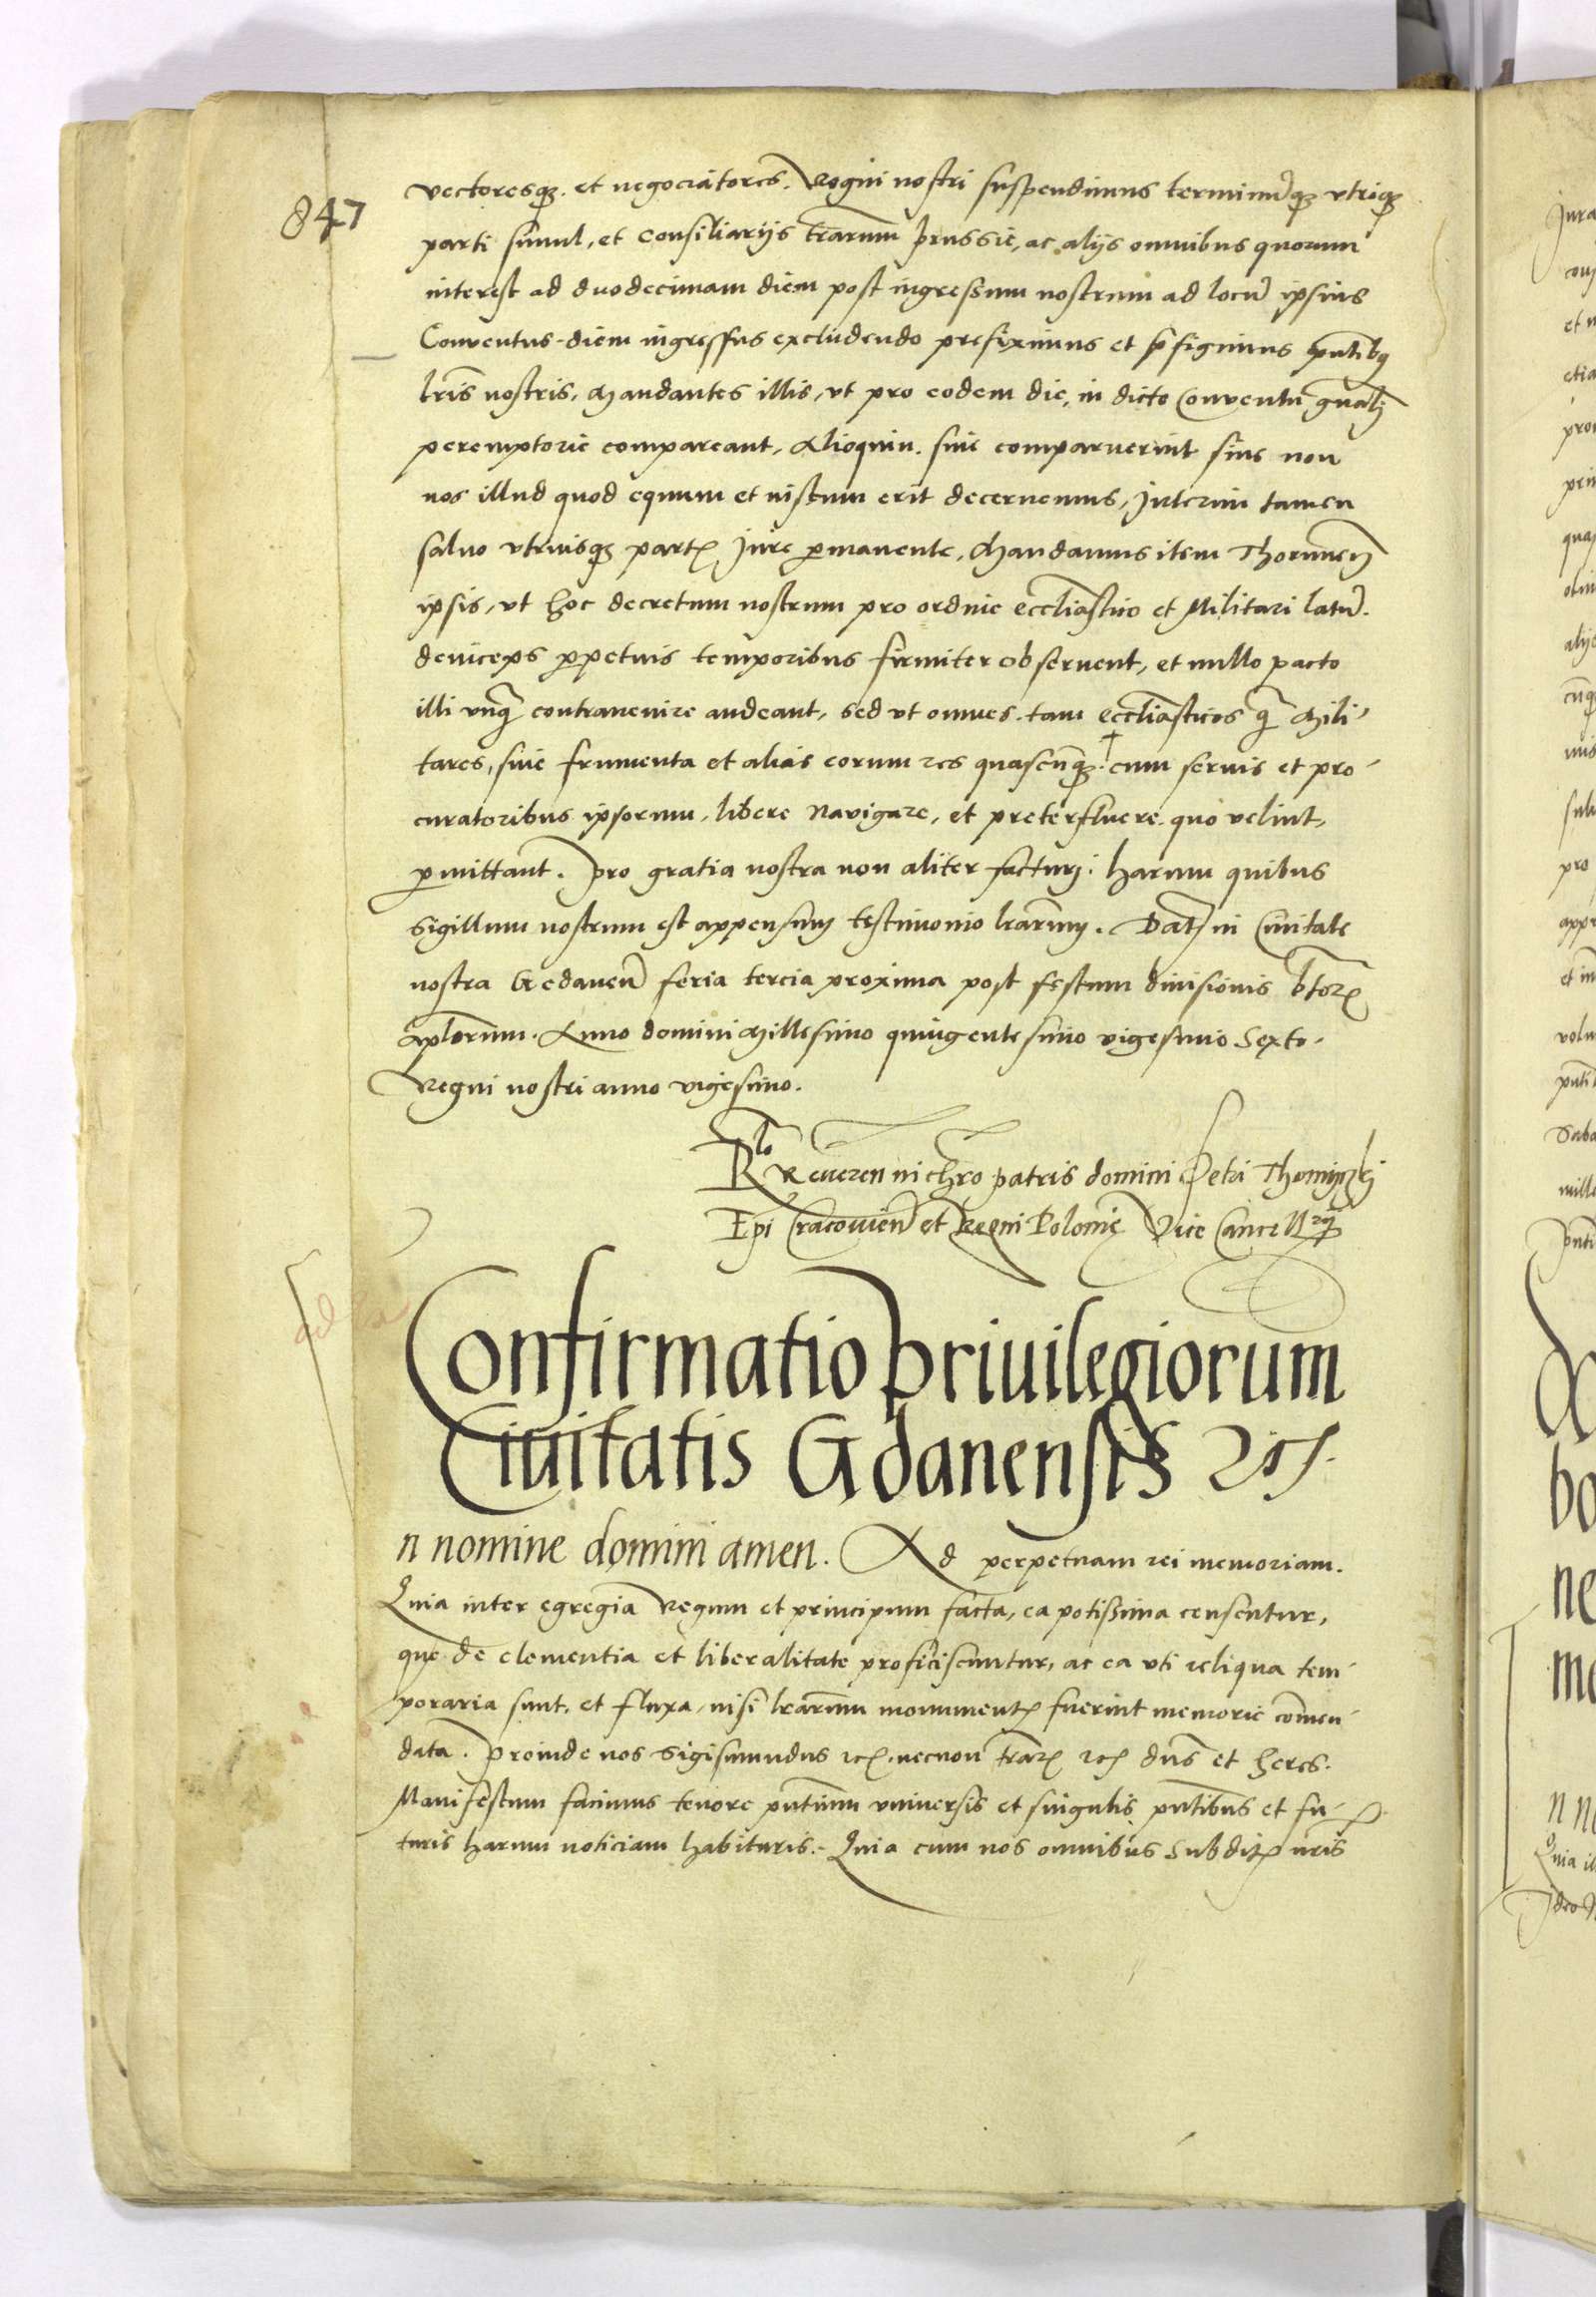 847
vectoresqꝫ et negociatores Regni nostri suspendimus terminūqꝫ vtriqꝫ
parti simul, et Consiliarijs trarum Prussie, ac alijs omnibus quorum
interest ad duodecimam diem post ingressum nostrum ad locū ipsius
Conventus diem ingressus excludendo prefiximus et p̄figimus pntibꝫ
lr̄is nostris, Mandantes illis, vt pro eodem die, in dicto Conventu gn̄ali
peremptorie compareant, Alioquin siue comparuerint siue non
nos illud quod equum et iustum erit decernemus, Interim tamen
saluo vtriusqꝫ partꝭ Jure ꝑmanente, Mandamus item Thorunen̄
ipsis, vt hoc decretum nostrum pro ordine eccl̄iastico et Militari latū
deinceps ꝑpetuis temporibus firmiter obseruent, et nullo pacto
illi vnq̄ contrauenire audeant, sed vt omnes tam eccl̄iasticos q̄ Mili-
tares, siue frumenta et alias eorum res quascūqꝫ cum seruis et pro-
curatoribus ipsorum, libere Navigare, et preterfluere quo velint,
ꝑmittant. Pro gratia nostra non aliter facturi. harum quibus
Sigillum nostrum est appensum testimonio lr̄arum. Dat in Ciuitate
nostra Gedanen̄ feria tercia proxima post festum diuisionis btorꝫ
apl̄orum. Anno domini Millesimo quingentesimo vigesimo Sexto.
Regni nostri anno vigesimo.
Rlo Reueren in chro patris domini Petri Thomiczki
Epi Cracouien̄ et Regni Polonię Vice Cancellrij
Confirmatio Priuilegiorum
Ciuitatis Gdanensis
n nomine domini amen. Ad perpetuam rei memoriam.
Quia inter egregia Regum et principum facta, ea potissima censentur,
que de clementia et liberalitate proficiscuntur, ac ea vti reliqua tem-
poraria sunt, et fluxa, nisi lr̄arum monumentꝭ fuerint memorie com̄en-
data. Proinde nos Sigismundus ꝛcꝭ necnon tr̄arꝫ ꝛcꝭ dn̄s et heres.
Manifestum facimus tenore pntium vniuersis et singulis pntibus et fu-
turis harum noticiam habituris. Quia cum nos omnibus Subditꝭ nr̄is